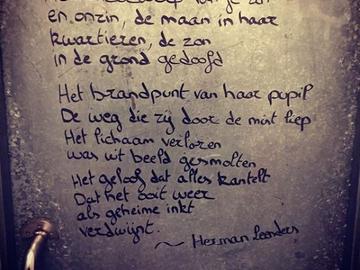 van je zin
en onzin, de maan in haar
kwartieren, de zon
in de grond gedoofd
Het brandpunt van haar pupil
De weg die zij door de mist liep
Het lichaam verloren
was uit beeld gesmolten
Het geloof dat alles kantelt
Dat het ooit weer
als geheime inkt
verdwijnt.
~ Herman Leenders